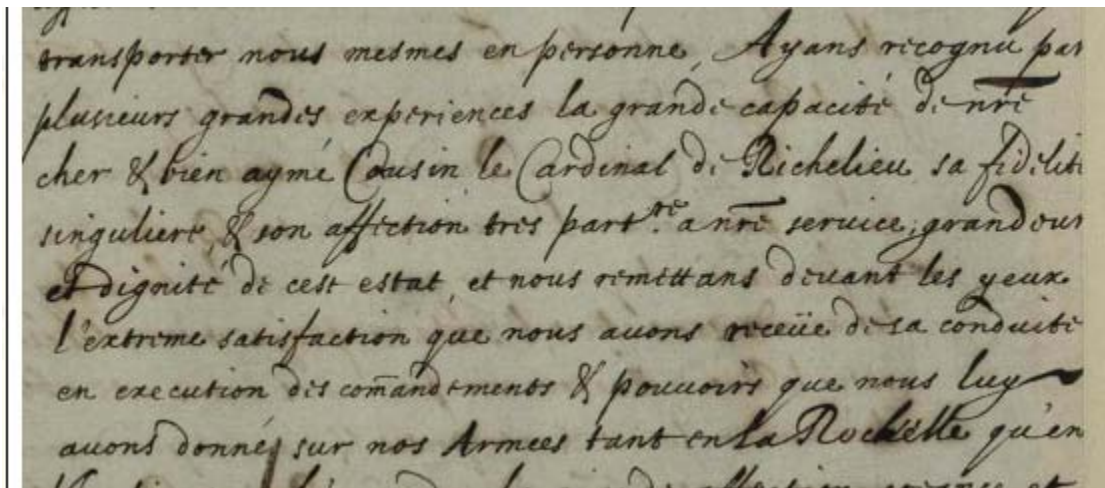 transporter nous mesmes en personne, Ayans recognu par
plusieurs grandes experiences la grande capacité de nr̃e
cher & bien aymé Cousin le Cardinal de Richelieu sa fidelité
singuliere & son affection tres part.re a nr̃e seruice, grandeur
et dignité de cest estat, et nous remettans deuant les yeux
l'extreme satisfaction que nous auons receüe de sa conduite
en execution des com̃andements & pouuoirs que nous luy
auons donnés sur nos Armees tant en la Rochelle qu'en